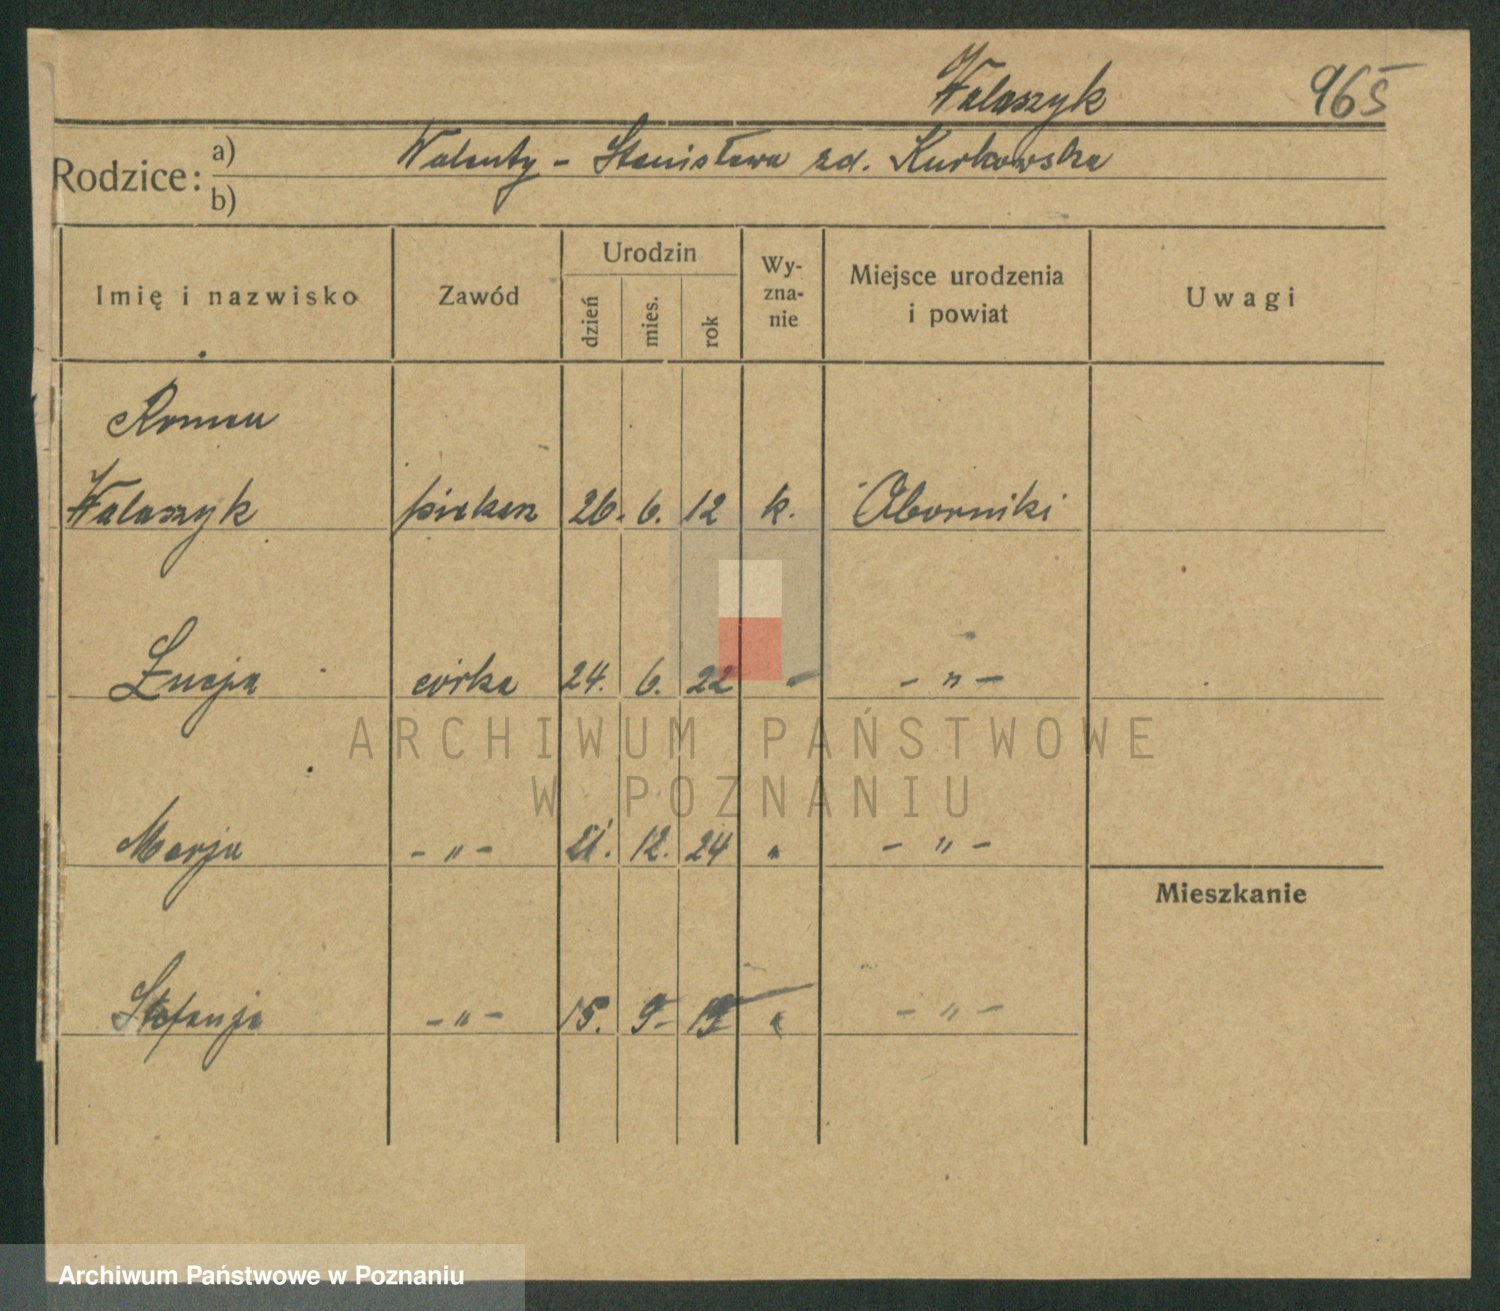 Walaszyk 965
Rodzice: a) Walenty – Stanisława zd. Kurkowska
b)
Imię i nazwisko Zawód Urodzin dzień mies. rok Wy-zna-nie Miejsce urodzenia i powiat Uwagi
Roman
Walaszyk piekarz 26. 6. 12 k. Oborniki
Łucja córka 24. 6. 22 – – " –
Marja – " – 21. 12. 24 " – " –
Mieszkanie
Stefanja – " – 15. 9. " – " –
ARCHIWUM PAŃSTWOWE
W POZNANIU
Archiwum Państwowe w Poznaniu